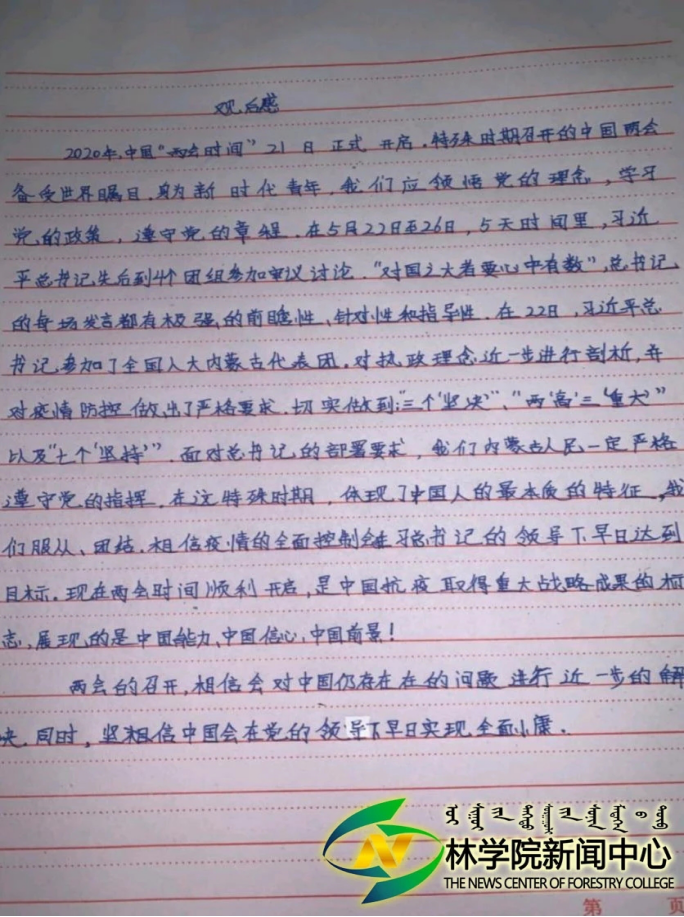 观后感
2020年，中国“两会时间”21日正式开启。特殊时期召开的中国两会
备受世界瞩目。身为新时代青年，我们应领悟党的理念，学习
党的政策，遵守党的章程。在5月22日至26日，5天时间里，习近
平总书记先后到4个团组参加审议讨论，“对国之大者要心中有数”，总书记
的每场发言都有极强的前瞻性、针对性和指导性。在22日，习近平总
书记参加了全国人大内蒙古代表团，对执政理念近一步进行剖析，并
对疫情防控做出了严格要求，切实做到：“三个‘坚决’”、“两‘高’三‘重大’”
以及“七个‘坚持’”。面对总书记的部署要求，我们内蒙古人民一定严格
遵守党的指挥，在这特殊时期，体现了中国人的最本质的特征，我
们服从、团结，相信疫情的全面控制会在习总书记的领导下早日达到
目标。现在两会时间顺利开启，是中国抗疫取得重大战略成果的标
志，展现的是中国能力、中国信心、中国前景！
两会的召开，相信会对中国仍存在在的问题进行近一步的解
决，同时，坚相信中国会在党的领导下早日实现全面小康。
林学院新闻中心
THE NEWS CENTER OF FORESTRY COLLEGE
第 页